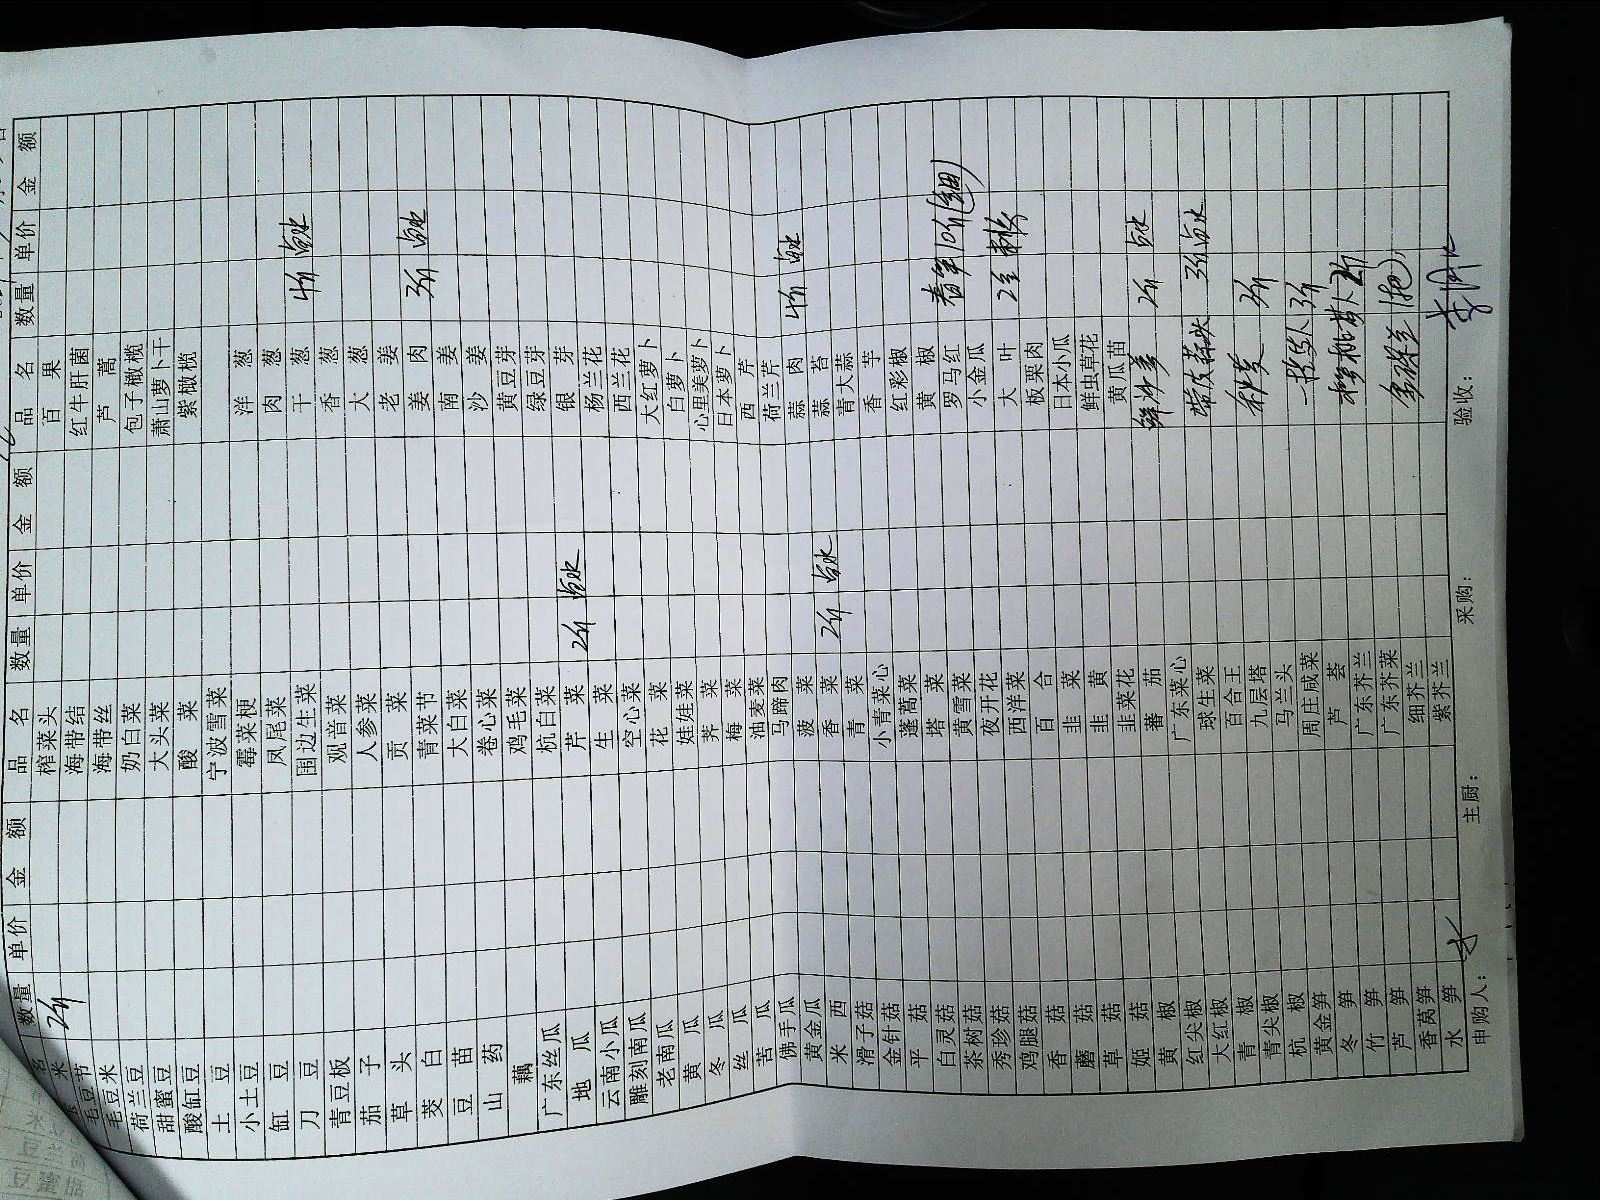 名 数量 单价 金额
米 2斤
毛豆节
毛豆米
荷兰豆
甜蜜豆
酸缸豆
土豆
小土豆
缸豆
刀豆
青豆板
茄子
草头
茭白
豆苗
山药
藕
广东丝瓜
地瓜
云南小瓜
雕刻南瓜
老南瓜
黄瓜
冬瓜
丝瓜
苦瓜
佛手瓜
黄金瓜
米西
滑子菇
金针菇
平菇
白灵菇
茶树菇
秀珍菇
鸡腿菇
香菇
蘑菇
草菇
姬菇
黄椒
红尖椒
大红椒
青椒
青尖椒
杭椒
黄金笋
冬笋
竹笋
芦笋
香莴笋
水笋
品名 数量 单价 金额
榨菜头
海带结
海带丝
奶白菜
大头菜
酸菜
宁波雪菜
霉菜梗
凤尾菜
围边生菜
观音菜
人参菜
贡菜
青菜节
大白菜
卷心菜
鸡毛菜
杭白菜
芹菜 2斤
生菜
空心菜
花菜
娃娃菜
荠菜
梅菜
油麦菜
马蹄肉
菠菜
香菜 2斤
青菜
小青菜心
蓬蒿菜
塔菜
黄雪菜
夜开花
西洋菜
百合
韭菜
韭黄
韭菜花
蕃茄
广东菜心
球生菜
百合王
九层塔
马兰头
周庄咸菜
芦荟
广东芥兰
广东芥菜
细芥兰
紫芥兰
品名 数量 单价 金额
百果
红牛肝菌
芦蒿
包子橄榄
萧山萝卜干
紫橄榄
洋葱
肉葱
干葱 4斤
香葱
大葱
老姜
姜肉 3斤
南姜
沙姜
黄豆芽
绿豆芽
银芽
杨兰花
西兰花
大红萝卜
白萝卜
心里美萝卜
日本萝卜
西芹
荷兰芹
蒜肉 4斤
蒜苔
青大蒜
香芋
红彩椒
黄椒
罗马红 春笋10斤
小金瓜
大叶 2盒
板栗肉
日本小瓜
鲜虫草花
黄瓜苗
鲜沙姜 2斤
带皮蒜头 3斤
秋葵 2斤
申购人：
主厨：
采购：
验收：